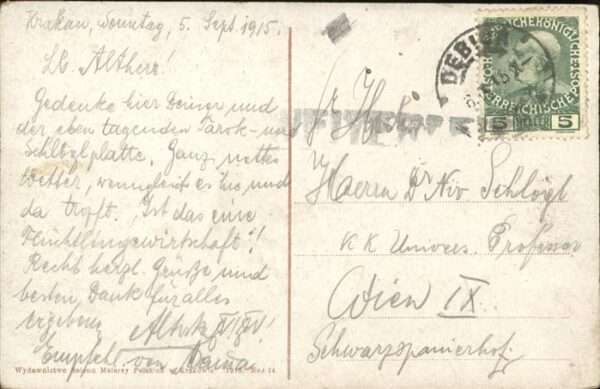 Krakau, Sonntag, 5. Sept 1915.
Lb. Altherr!
Gedenke hier Deiner und
der eben tagenden Tarok- und
Schlöglplatte. Ganz nettes
Wetter, wenngleich es hie und
da tropft. "Ist das eine
Flüchtlingswirtschaft"!
Recht herzl. Grüße und
besten Dank für alles
ergebens
Empfehl. von
Wydawnictwo Salonu Malarzy Polskich w Krakowie
DEBI
5 HELLER 5
Herrn Dr Niv Schlögl
KK Univers. Professor
Wien IX.
Schwarzspanierhof.